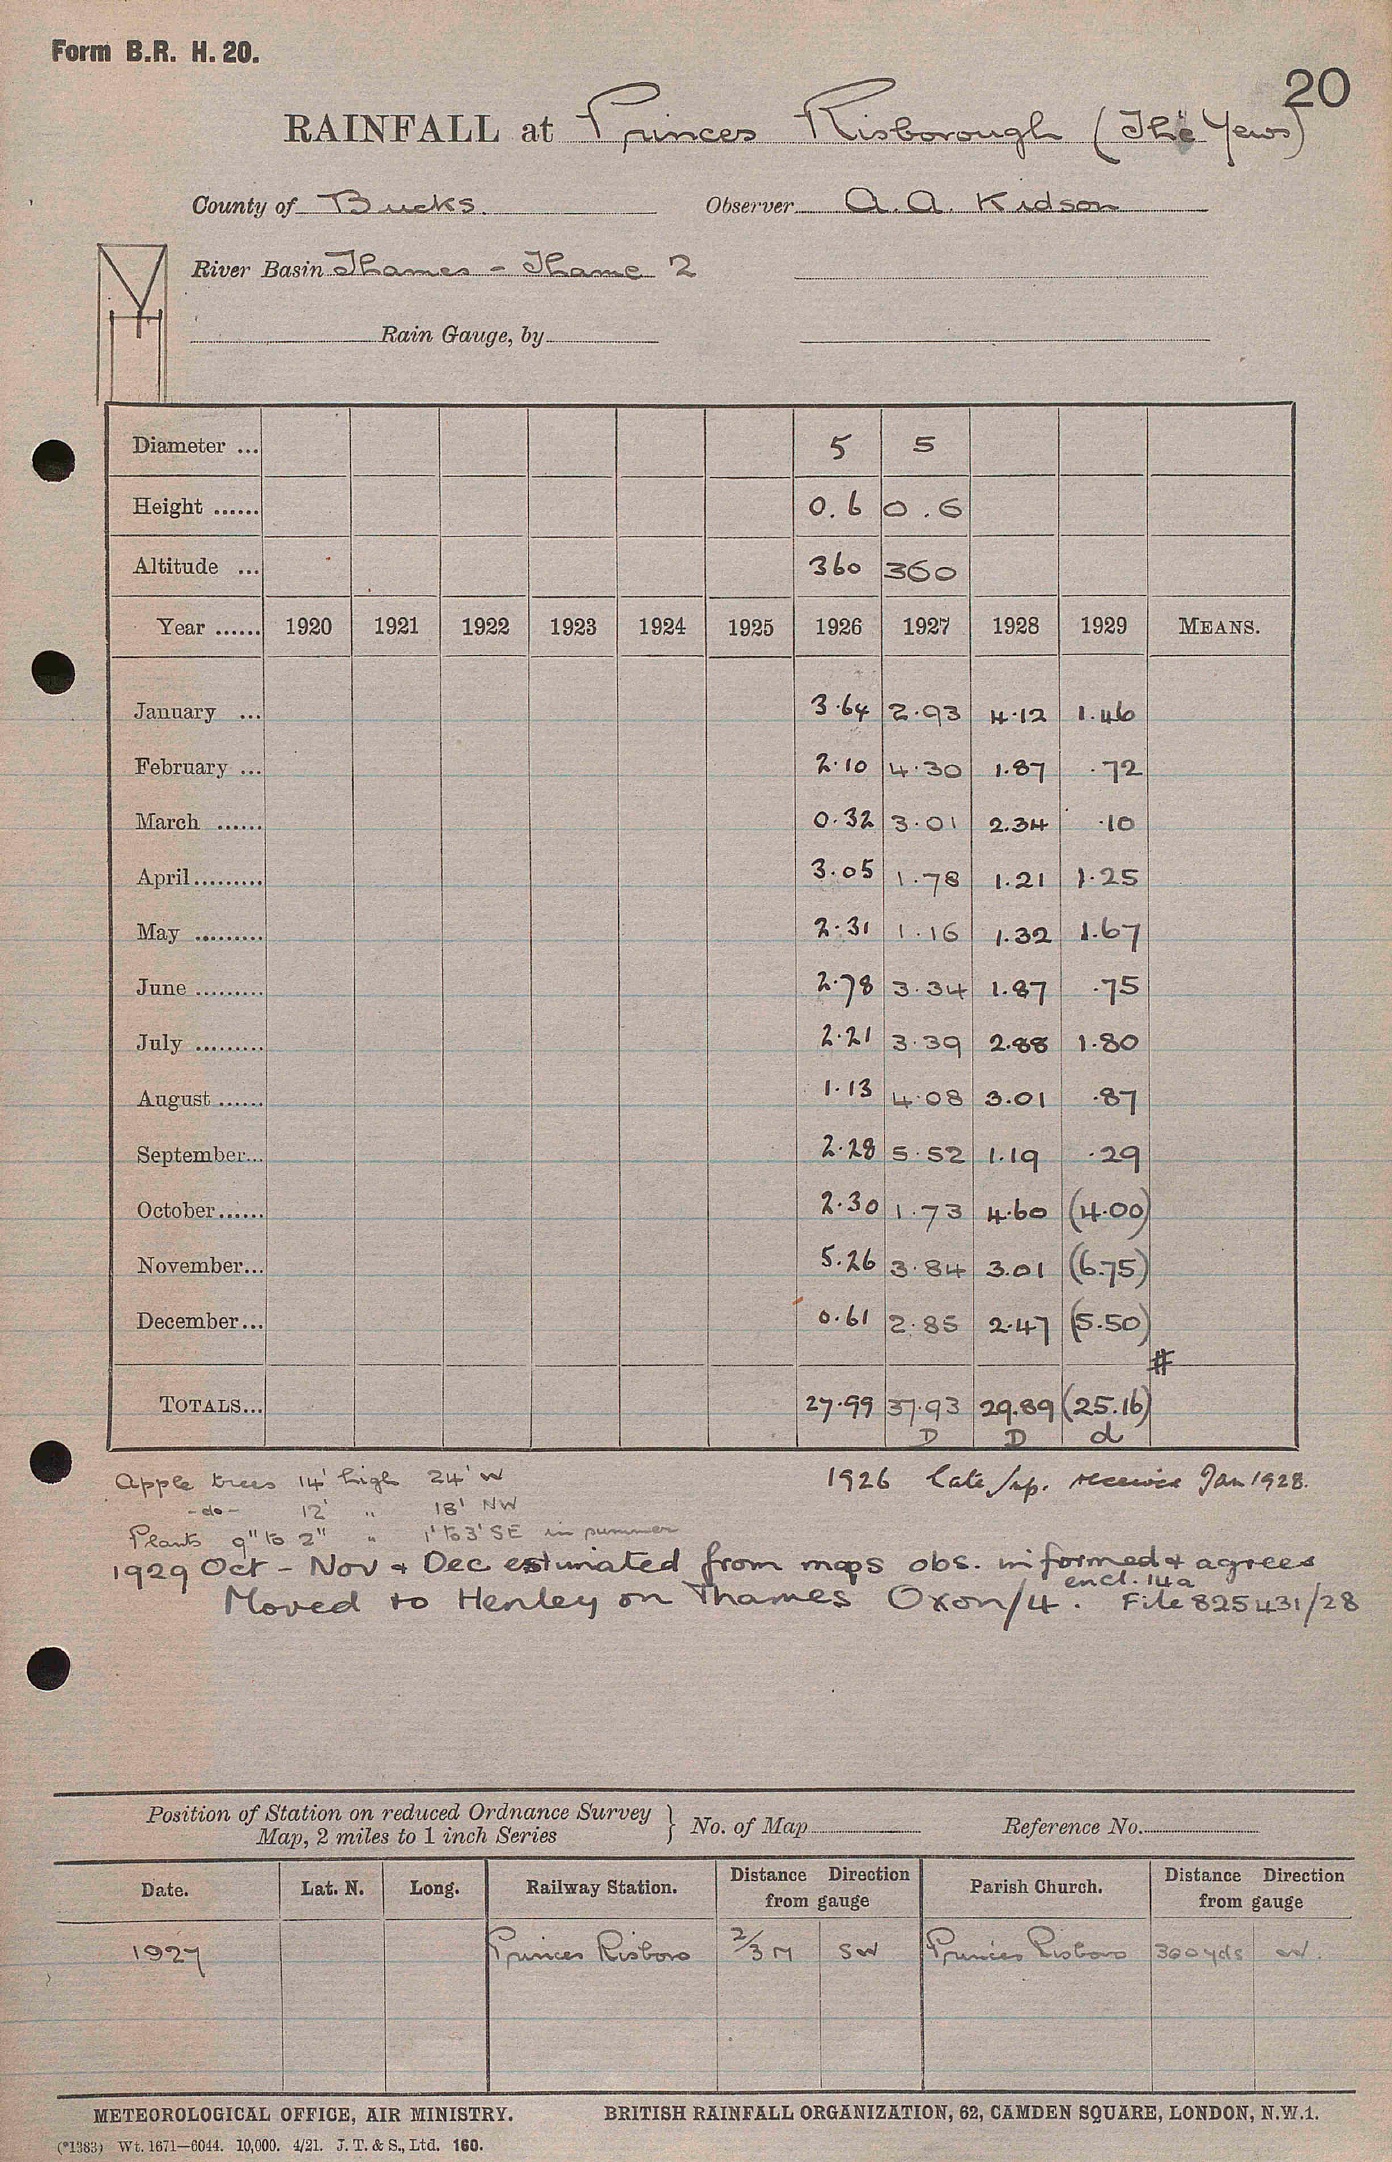 Form B.R. H. 20.
20
RAINFALL at Princes Risborough (The Yews)
County of Bucks. Observer A. A. Kidson
River Basin Thames - Thame 2
Rain Gauge, by
Diameter ... 5 5
Height ...... 0.6 0.6
Altitude ... 360 360
Year ...... 1920 1921 1922 1923 1924 1925 1926 1927 1928 1929 MEANS.
January ... 3.64 2.93 4.12 1.46
February ... 2.10 4.30 1.87 .72
March ...... 0.32 3.01 2.34 .10
April......... 3.05 1.78 1.21 1.25
May ......... 2.31 1.16 1.32 1.67
June ......... 2.78 3.34 1.87 .75
July ......... 2.21 3.39 2.88 1.80
August ...... 1.13 4.08 3.01 .87
September... 2.28 5.52 1.19 .29
October...... 2.30 1.73 4.60 (4.00)
November... 5.26 3.84 3.01 (6.75)
December... 0.61 2.85 2.47 (5.50)
#
TOTALS... 27.99 37.93 29.89 (25.16)
D D d
Apple trees 14' high 24' W
1926 late sup. received Jan 1928.
-do- 12' " 18' NW
Plants 9" to 2" " 1' to 3' SE in summer
1929 Oct - Nov & Dec estimated from maps obs. informed & agrees
encl. 14a
Moved to Henley on Thames Oxon/4. File 825431/28
Position of Station on reduced Ordnance Survey
Map, 2 miles to 1 inch Series } No. of Map Reference No.
Date. Lat. N. Long. Railway Station. Distance Direction from gauge Parish Church. Distance Direction from gauge
1927 Princes Risboro 2/3 M SW Princes Risboro 300 yds W.
METEOROLOGICAL OFFICE, AIR MINISTRY. BRITISH RAINFALL ORGANIZATION, 62, CAMDEN SQUARE, LONDON, N.W.1.
(*1383) Wt. 1671—6044. 10,000. 4/21. J. T. & S., Ltd. 160.